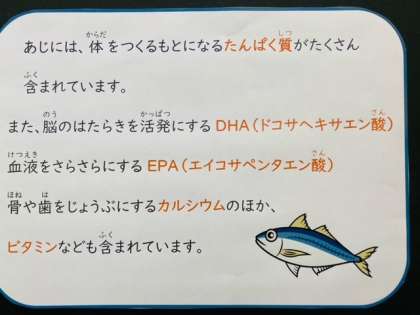 あじには、体をつくるもとになるたんぱく質がたくさん
含まれています。
また、脳のはたらきを活発にするDHA(ドコサヘキサエン酸)
血液をさらさらにするEPA(エイコサペンタエン酸)
骨や歯をじょうぶにするカルシウムのほか、
ビタミンなども含まれています。